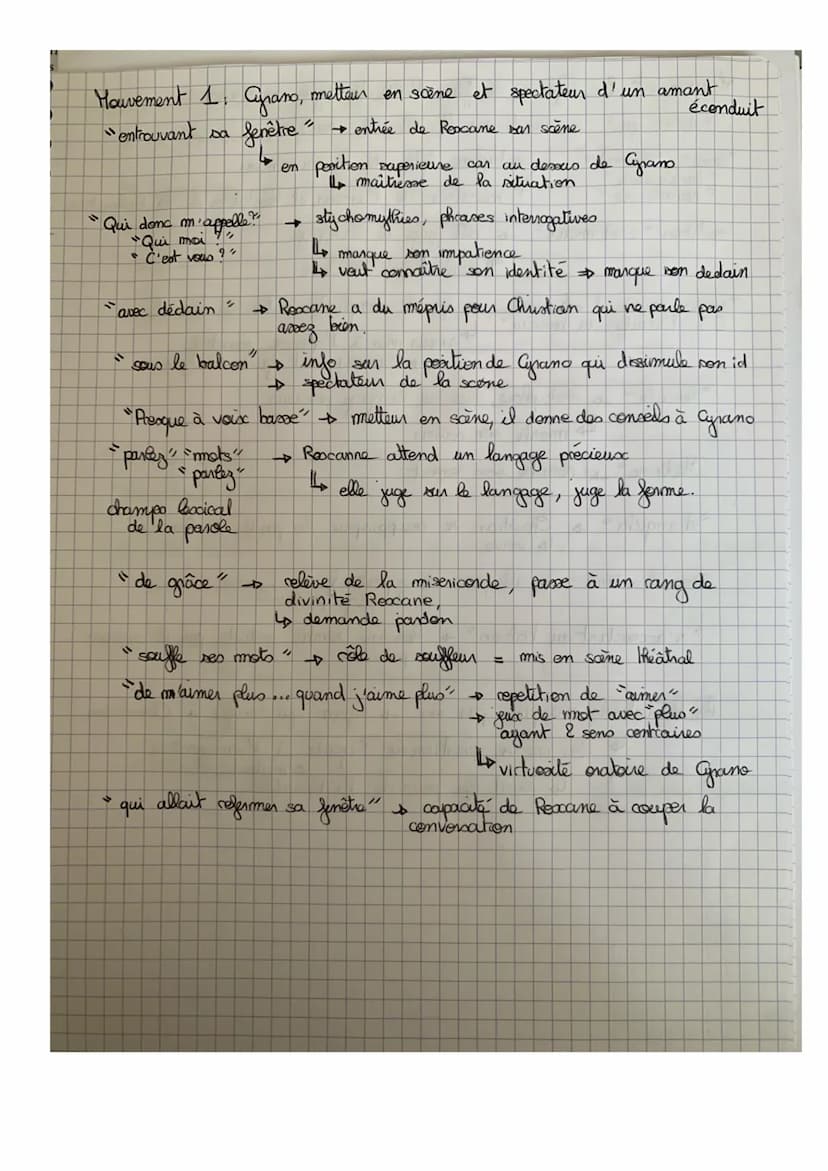 Mouvement 1 : Cyrano, metteur en scène et spectateur d'un amant
éconduit
"entrouvant sa fenêtre" → entrée de Roxane sur scène
↳ en position superieure car au dessus de Cyrano
↳ maîtresse de la situation
"Qui donc m'appelle?" → stychomythies, phrases interrogatives
"Qui moi ?"
"C'est vous ?"
↳ marque son impatience
↳ veut connaître son identité ⇒ marque son dedain
"avec dédain" → Roxane a du mépris pour Christian qui ne parle pas
assez bien.
"sous le balcon" → info sur la position de Cyrano qui dissimule son id
→ spectateur de la scène
"Presque à voix basse" → metteur en scène, il donne des conseils à Cyrano
"parlez" "mots" → Roxanne attend un langage précieux
"parlez"
↳ elle juge sur le langage, juge la forme.
champs lexical
de la parole
"de grâce" → relève de la misericorde, passe à un rang de
divinité Roxane,
↳ demande pardon
"souffle ses mots" → rôle de souffleur = mis en scène théâtral
"de m'aimer plus... quand j'aime plus" → repetition de "aimer"
→ jeux de mot avec "plus"
ayant 2 sens contraires
↳ virtuosité oratoire de Cyrano
"qui allait refermer sa fenêtre" → capacité de Roxane à couper la
conversation